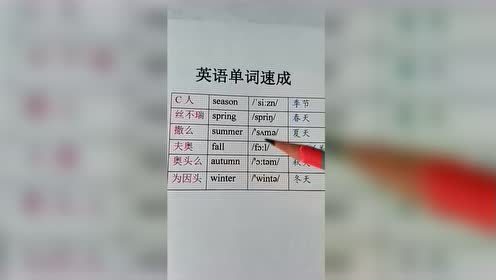 英语单词速成
C人 season /ˈsiːzn/ 季节
丝不瑞 spring /spriŋ/ 春天
撒么 summer /ˈsʌmə/ 夏天
夫奥 fall /fɔːl/
奥头么 autumn /ˈɔːtəm/ 秋天
为因头 winter /ˈwintə/ 冬天